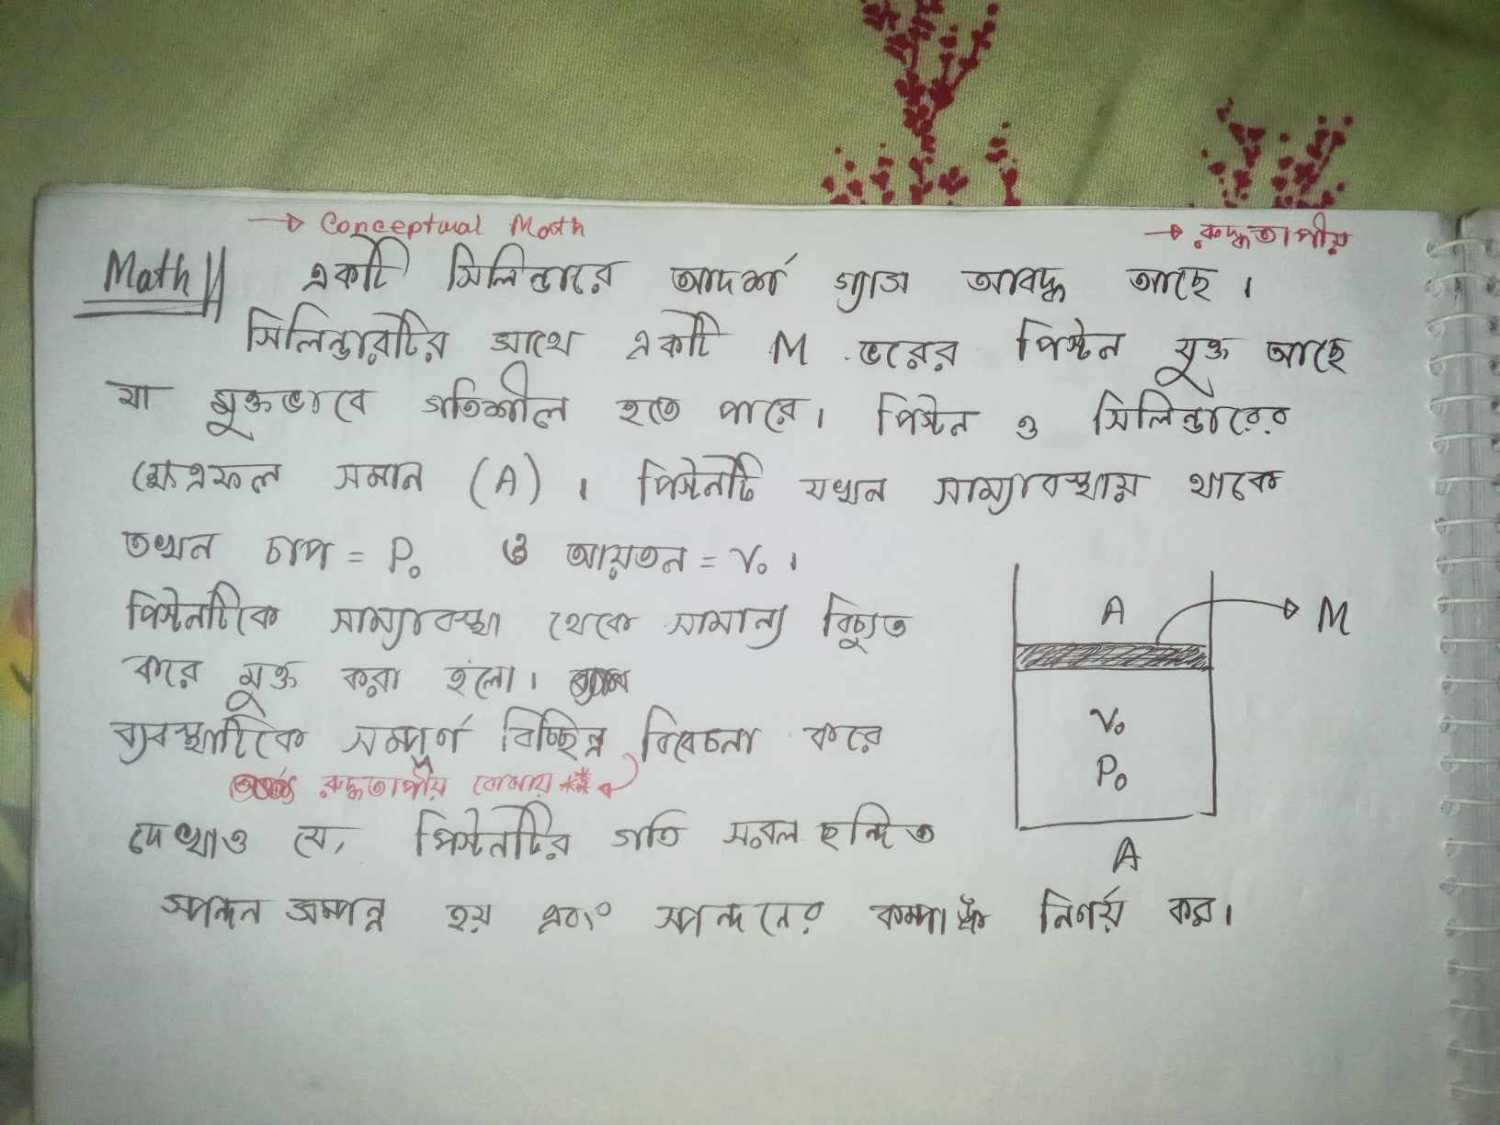 → Conceptual Math
→ রুদ্ধতাপীয়
Math || একটি সিলিন্ডারে আদর্শ গ্যাস আবদ্ধ আছে।
সিলিন্ডারটির সাথে একটি M ভরের পিস্টন যুক্ত আছে
যা মুক্তভাবে গতিশীল হতে পারে। পিস্টন ও সিলিন্ডারের
ক্ষেত্রফল সমান (A)। পিস্টনটি যখন সাম্যাবস্থায় থাকে
তখন চাপ = P₀ ও আয়তন = V₀।
পিস্টনটিকে সাম্যাবস্থা থেকে সামান্য বিচ্যুত
করে মুক্ত করা হলো।
ব্যবস্থাটিকে সম্পূর্ণ বিচ্ছিন্ন বিবেচনা করে
রুদ্ধতাপীয় বোঝায় ***
দেখাও যে, পিস্টনটির গতি সরল ছন্দিত
স্পন্দন সম্পন্ন হয় এবং স্পন্দনের কম্পাঙ্ক নির্ণয় কর।
A
M
V₀
P₀
A